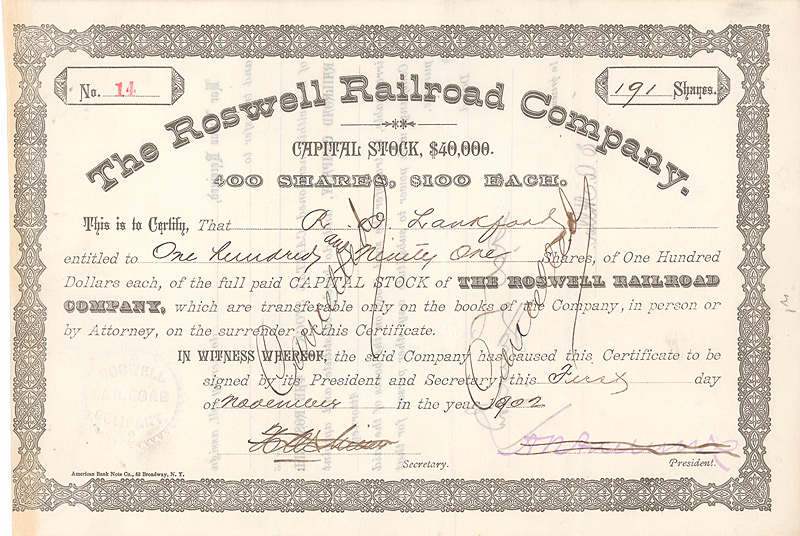 No. 14
191 Shares.
The Roswell Railroad Company.
CAPITAL STOCK, $40,000.
400 SHARES, $100 EACH.
This is to Certify, That R. Lankford
entitled to One hundred and Ninety One Shares, of One Hundred
Dollars each, of the full paid CAPITAL STOCK of THE ROSWELL RAILROAD
COMPANY, which are transferable only on the books of the Company, in person or
by Attorney, on the surrender of this Certificate.
IN WITNESS WHEREOF, the said Company has caused this Certificate to be
signed by its President and Secretary this First day
of November in the year 1902
Secretary.
President.
American Bank Note Co., 85 Broadway, N. Y.
Cancelled
Cancelled